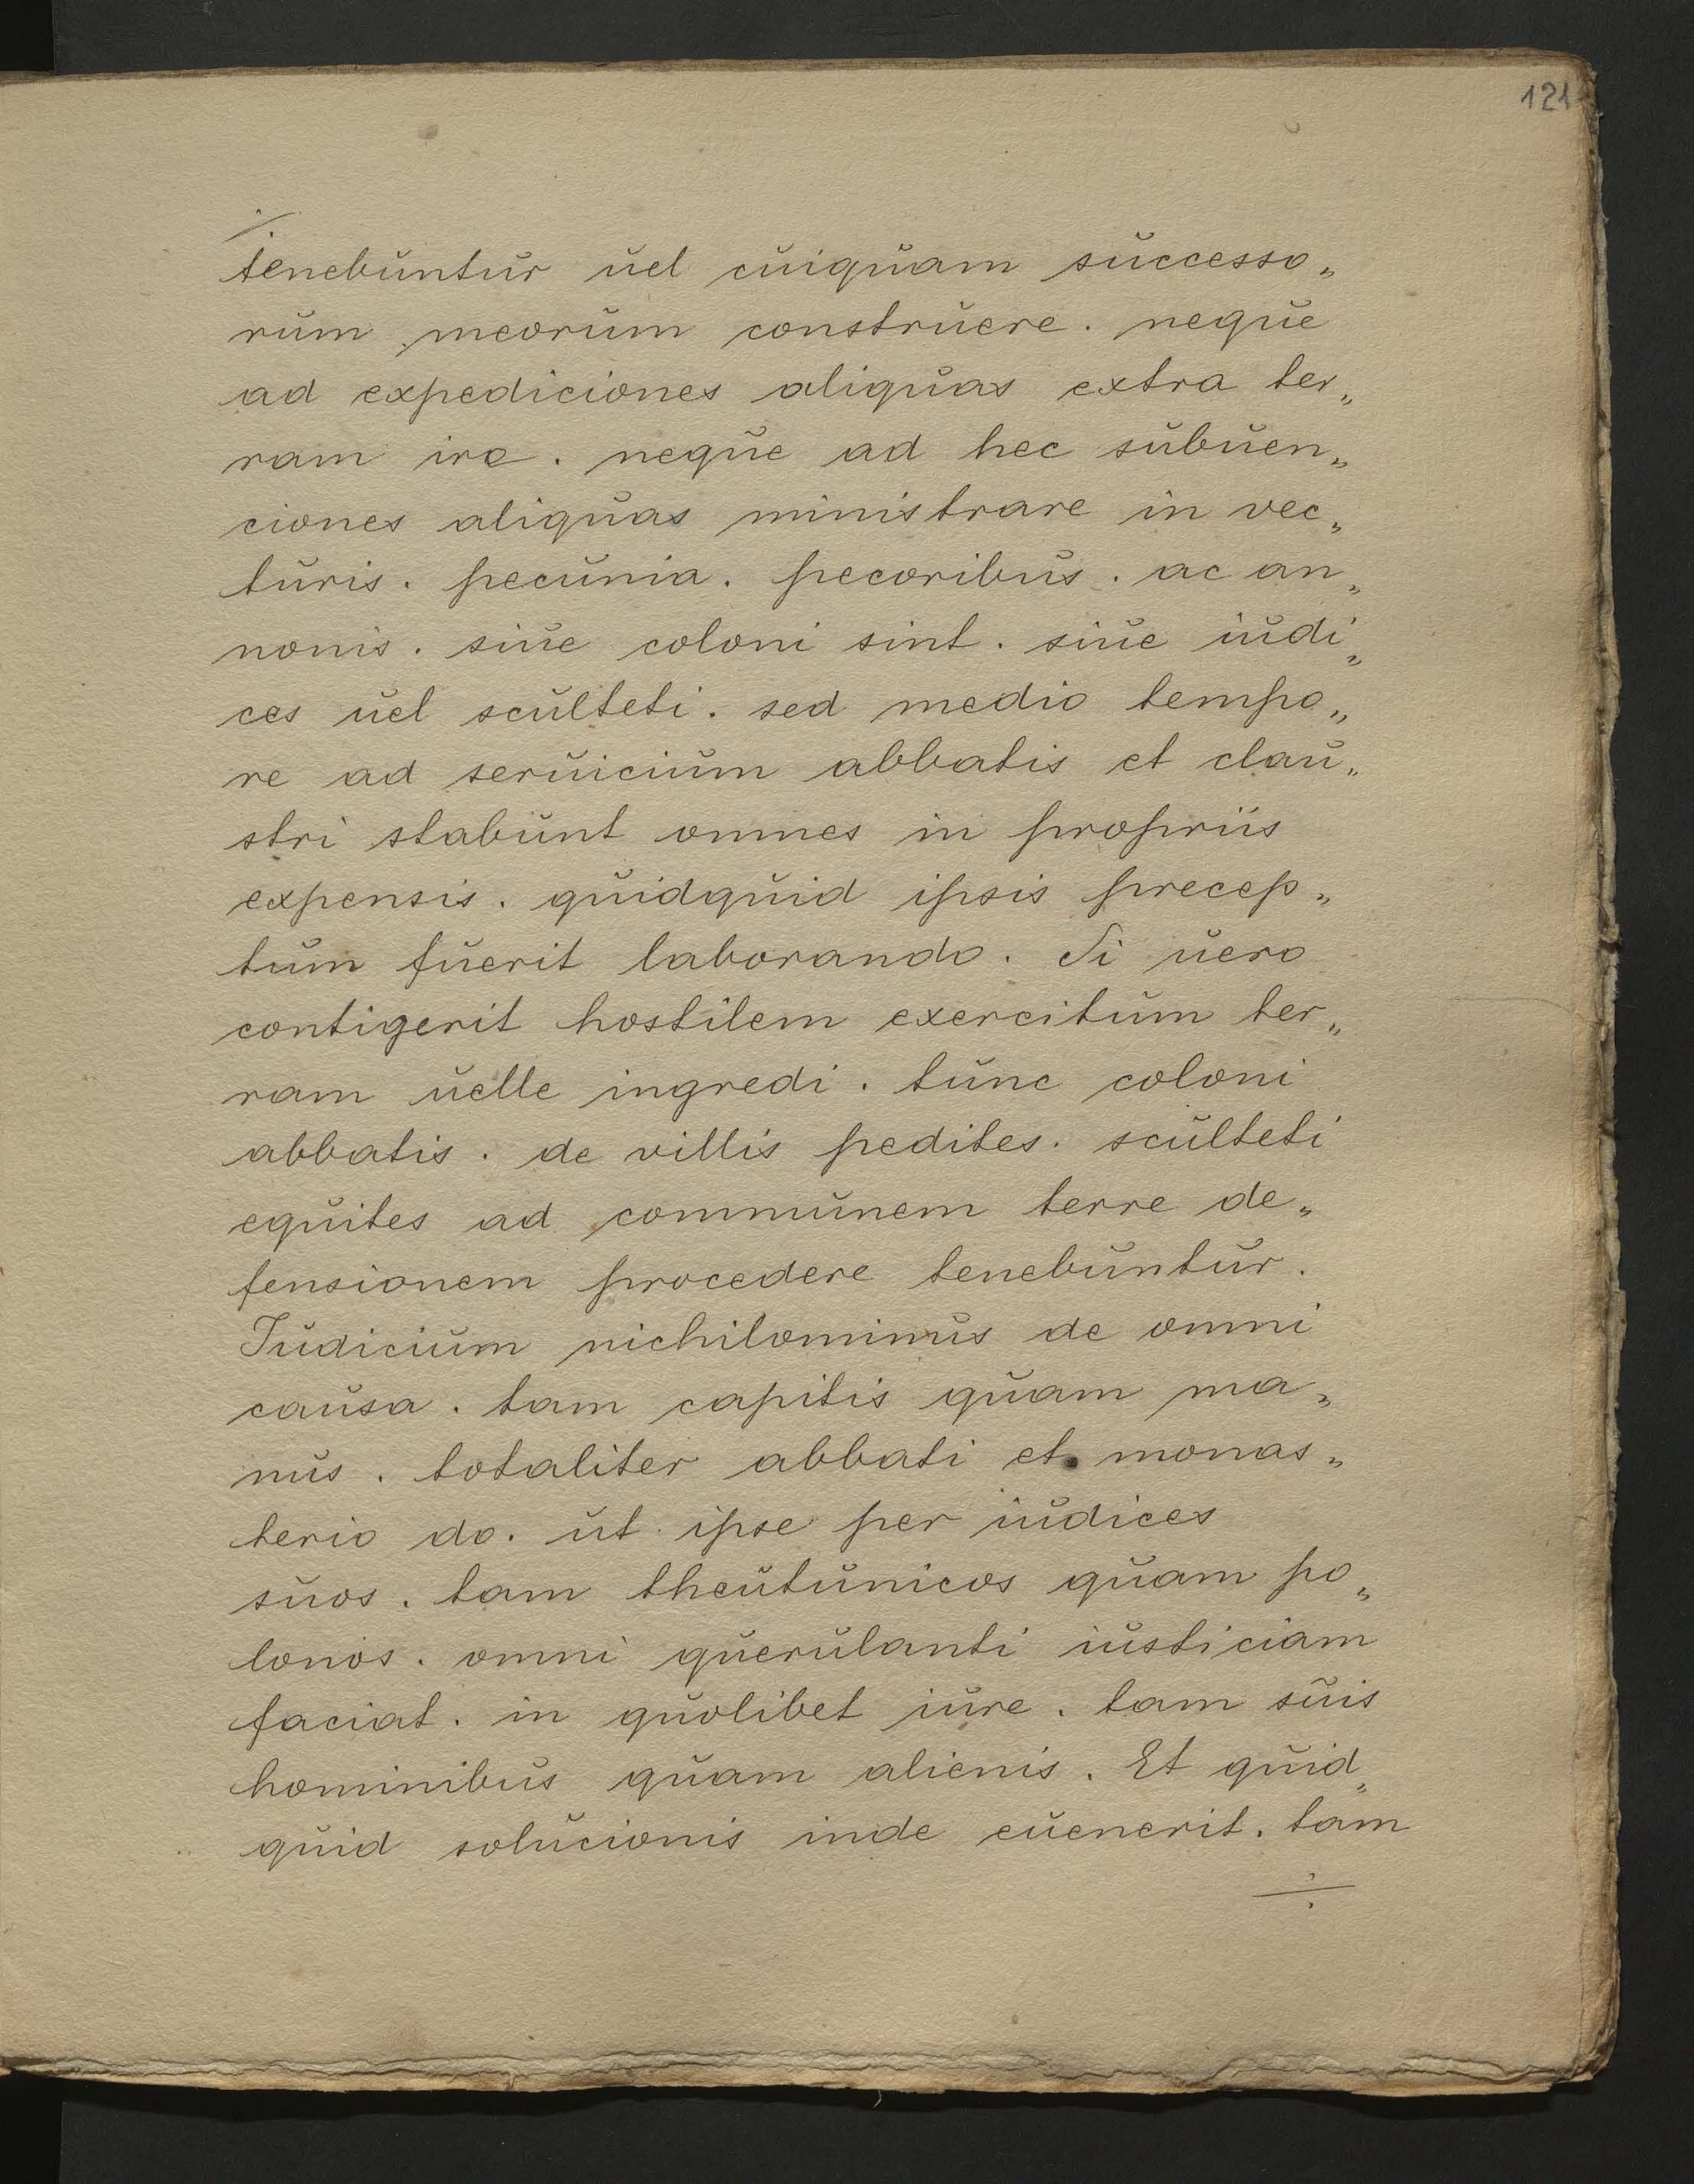 121
tenebuntur uel cuiquam successo„
rum meorum construere. neque
ad expediciones aliquas extra ter„
ram ire. neque ad hec subuen„
ciones aliquas ministrare in vec„
turis. pecunia. pecoribus. ac an„
nonis. siue coloni sint. siue iudi„
ces uel sculteti. sed medio tempo„
re ad seruicium abbatis et clau„
stri stabunt omnes in propriis
expensis. quidquid ipsis precep„
tum fuerit laborando. Si uero
contigerit hostilem exercitum ter„
ram uelle ingredi. tunc coloni
abbatis. de villis pedites. sculteti
equites ad communem terre de„
fensionem procedere tenebuntur.
Iudicium nichilominus de omni
causa. tam capitis quam ma„
nus. totaliter abbati et monas„
terio do. ut ipse per iudices
suos. tam theutunicos quam po„
lonos. omni querulanti iusticiam
faciat. in quolibet iure. tam suis
hominibus quam alienis. Et quid„
quid solucionis inde euenerit. tam